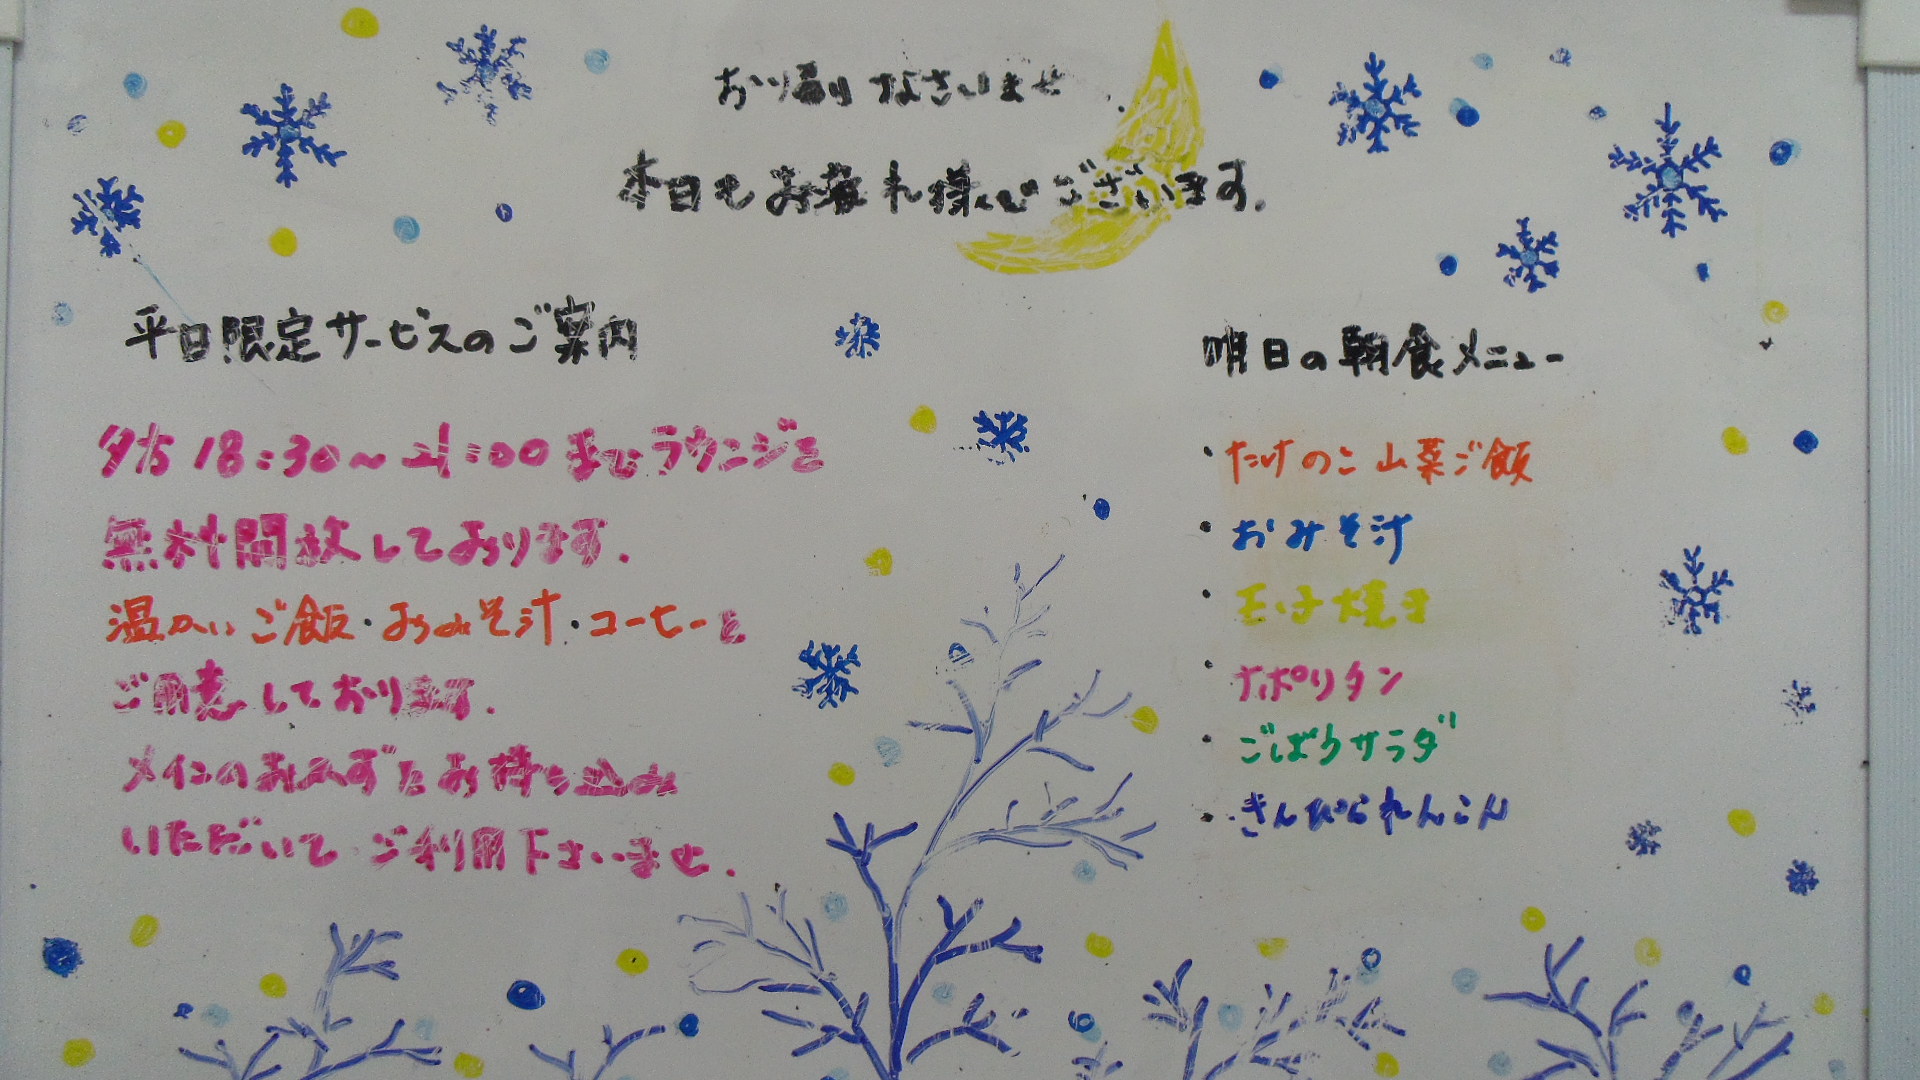 お帰りなさいませ
本日もお疲れ様でございます.
平日限定サービスのご案内
夕方 18:30〜21:00までラウンジを
無料開放しております.
温かいご飯・おみそ汁・コーヒーを
ご用意しております.
メインのおかずをお持ち込み
いただいてご利用下さいませ.
明日の朝食メニュー
・たけのこ山菜ご飯
・おみそ汁
・玉子焼き
・ナポリタン
・ごぼうサラダ
・きんぴられんこん